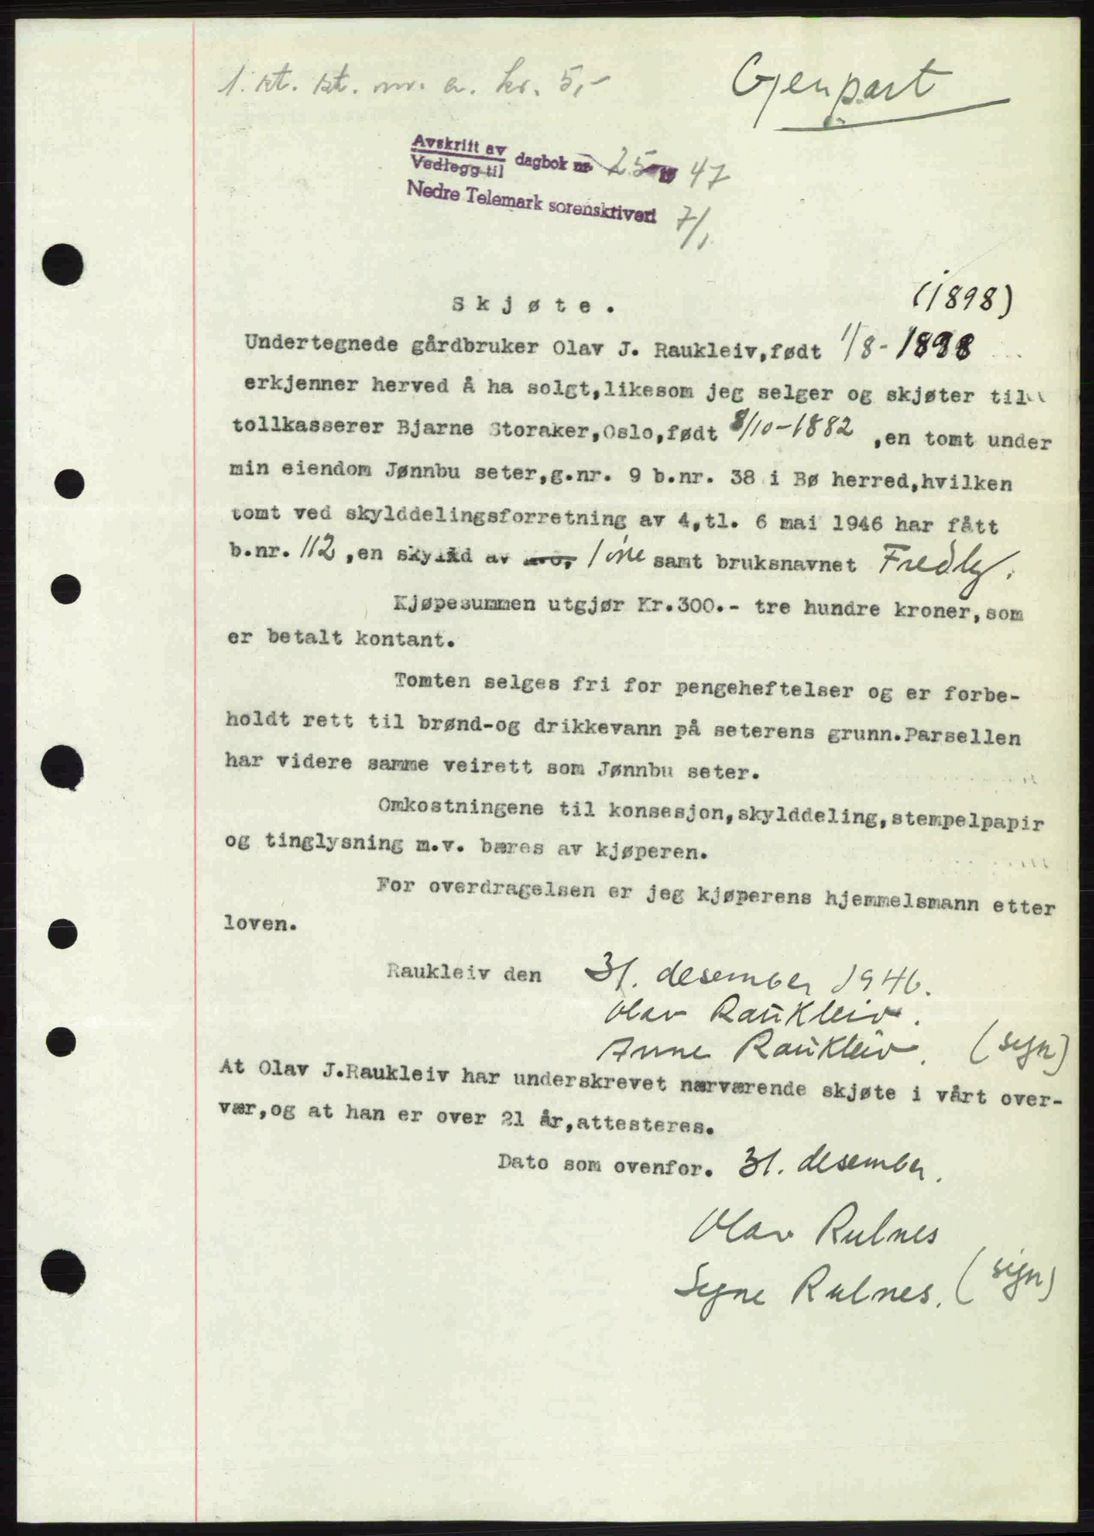 1. st. st. mr. a. kr. 5,-
Gjenpart
Avskrift av
Vedlegg til
dagbok nr 25 19 47
Nedre Telemark sorenskriveri
7/1
(1898)
Skjøte.
Undertegnede gårdbruker Olav J. Raukleiv,født 1/8-1898
erkjenner herved å ha solgt,likesom jeg selger og skjøter til
tollkasserer Bjarne Storaker,Oslo,født 8/10-1882 ,en tomt under
min eiendom Jønnbu seter,g.nr. 9 b.nr. 38 i Bø herred,hvilken
tomt ved skylddelingsforretning av 4,tl. 6 mai 1946 har fått
b.nr. 112 ,en skyld av 1 øre samt bruksnavnet Fredly.
Kjøpesummen utgjør Kr.300.- tre hundre kroner,som
er betalt kontant.
Tomten selges fri for pengeheftelser og er forbe-
holdt rett til brønd-og drikkevann på seterens grunn.Parsellen
har videre samme veirett som Jønnbu seter.
Omkostningene til konsesjon,skylddeling,stempelpapir
og tinglysning m.v. bæres av kjøperen.
For overdragelsen er jeg kjøperens hjemmelsmann etter
loven.
Raukleiv den 31. desember 1946.
Olav Raukleiv.
Anne Raukleiv. (sign)
At Olav J.Raukleiv har underskrevet nærværende skjøte i vårt over-
vær,og at han er over 21 år,attesteres.
Dato som ovenfor. 31. desember.
Olav Rulnes
Segne Rulnes. (sign)